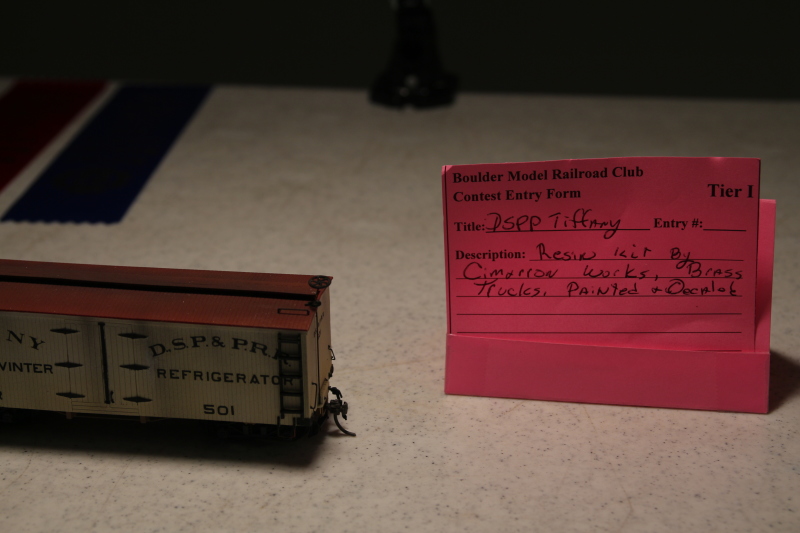 Boulder Model Railroad Club
Contest Entry Form
Tier I
Title: DSPP Tiffany Entry #:
Description: Resin kit By
Cimarron Works, Brass
Trucks, Painted & Decaled
NY
WINTER
D.S.P.& P.R.R.
REFRIGERATOR
501